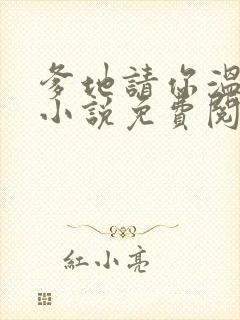 爹地請你溫
小說免費閱
紅小亮